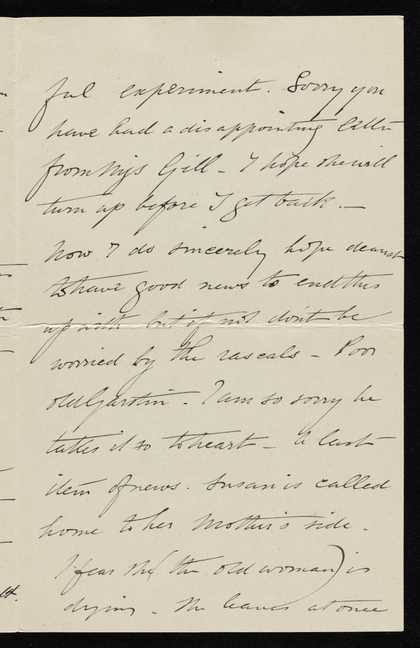 ful experiment. Sorry you
have had a disappointing letter
from Miss Gill - I hope she will
turn up before I get back. -
Now I do sincerely hope dearest
to have good news to end this
up with but if not don't be
worried by the rascals - Poor
old Gastin. I am so sorry he
takes it so to heart - A last
item of news. Susan is called
home to her Mother's side.
I fear she (the old woman) is
dying - She leaves at once